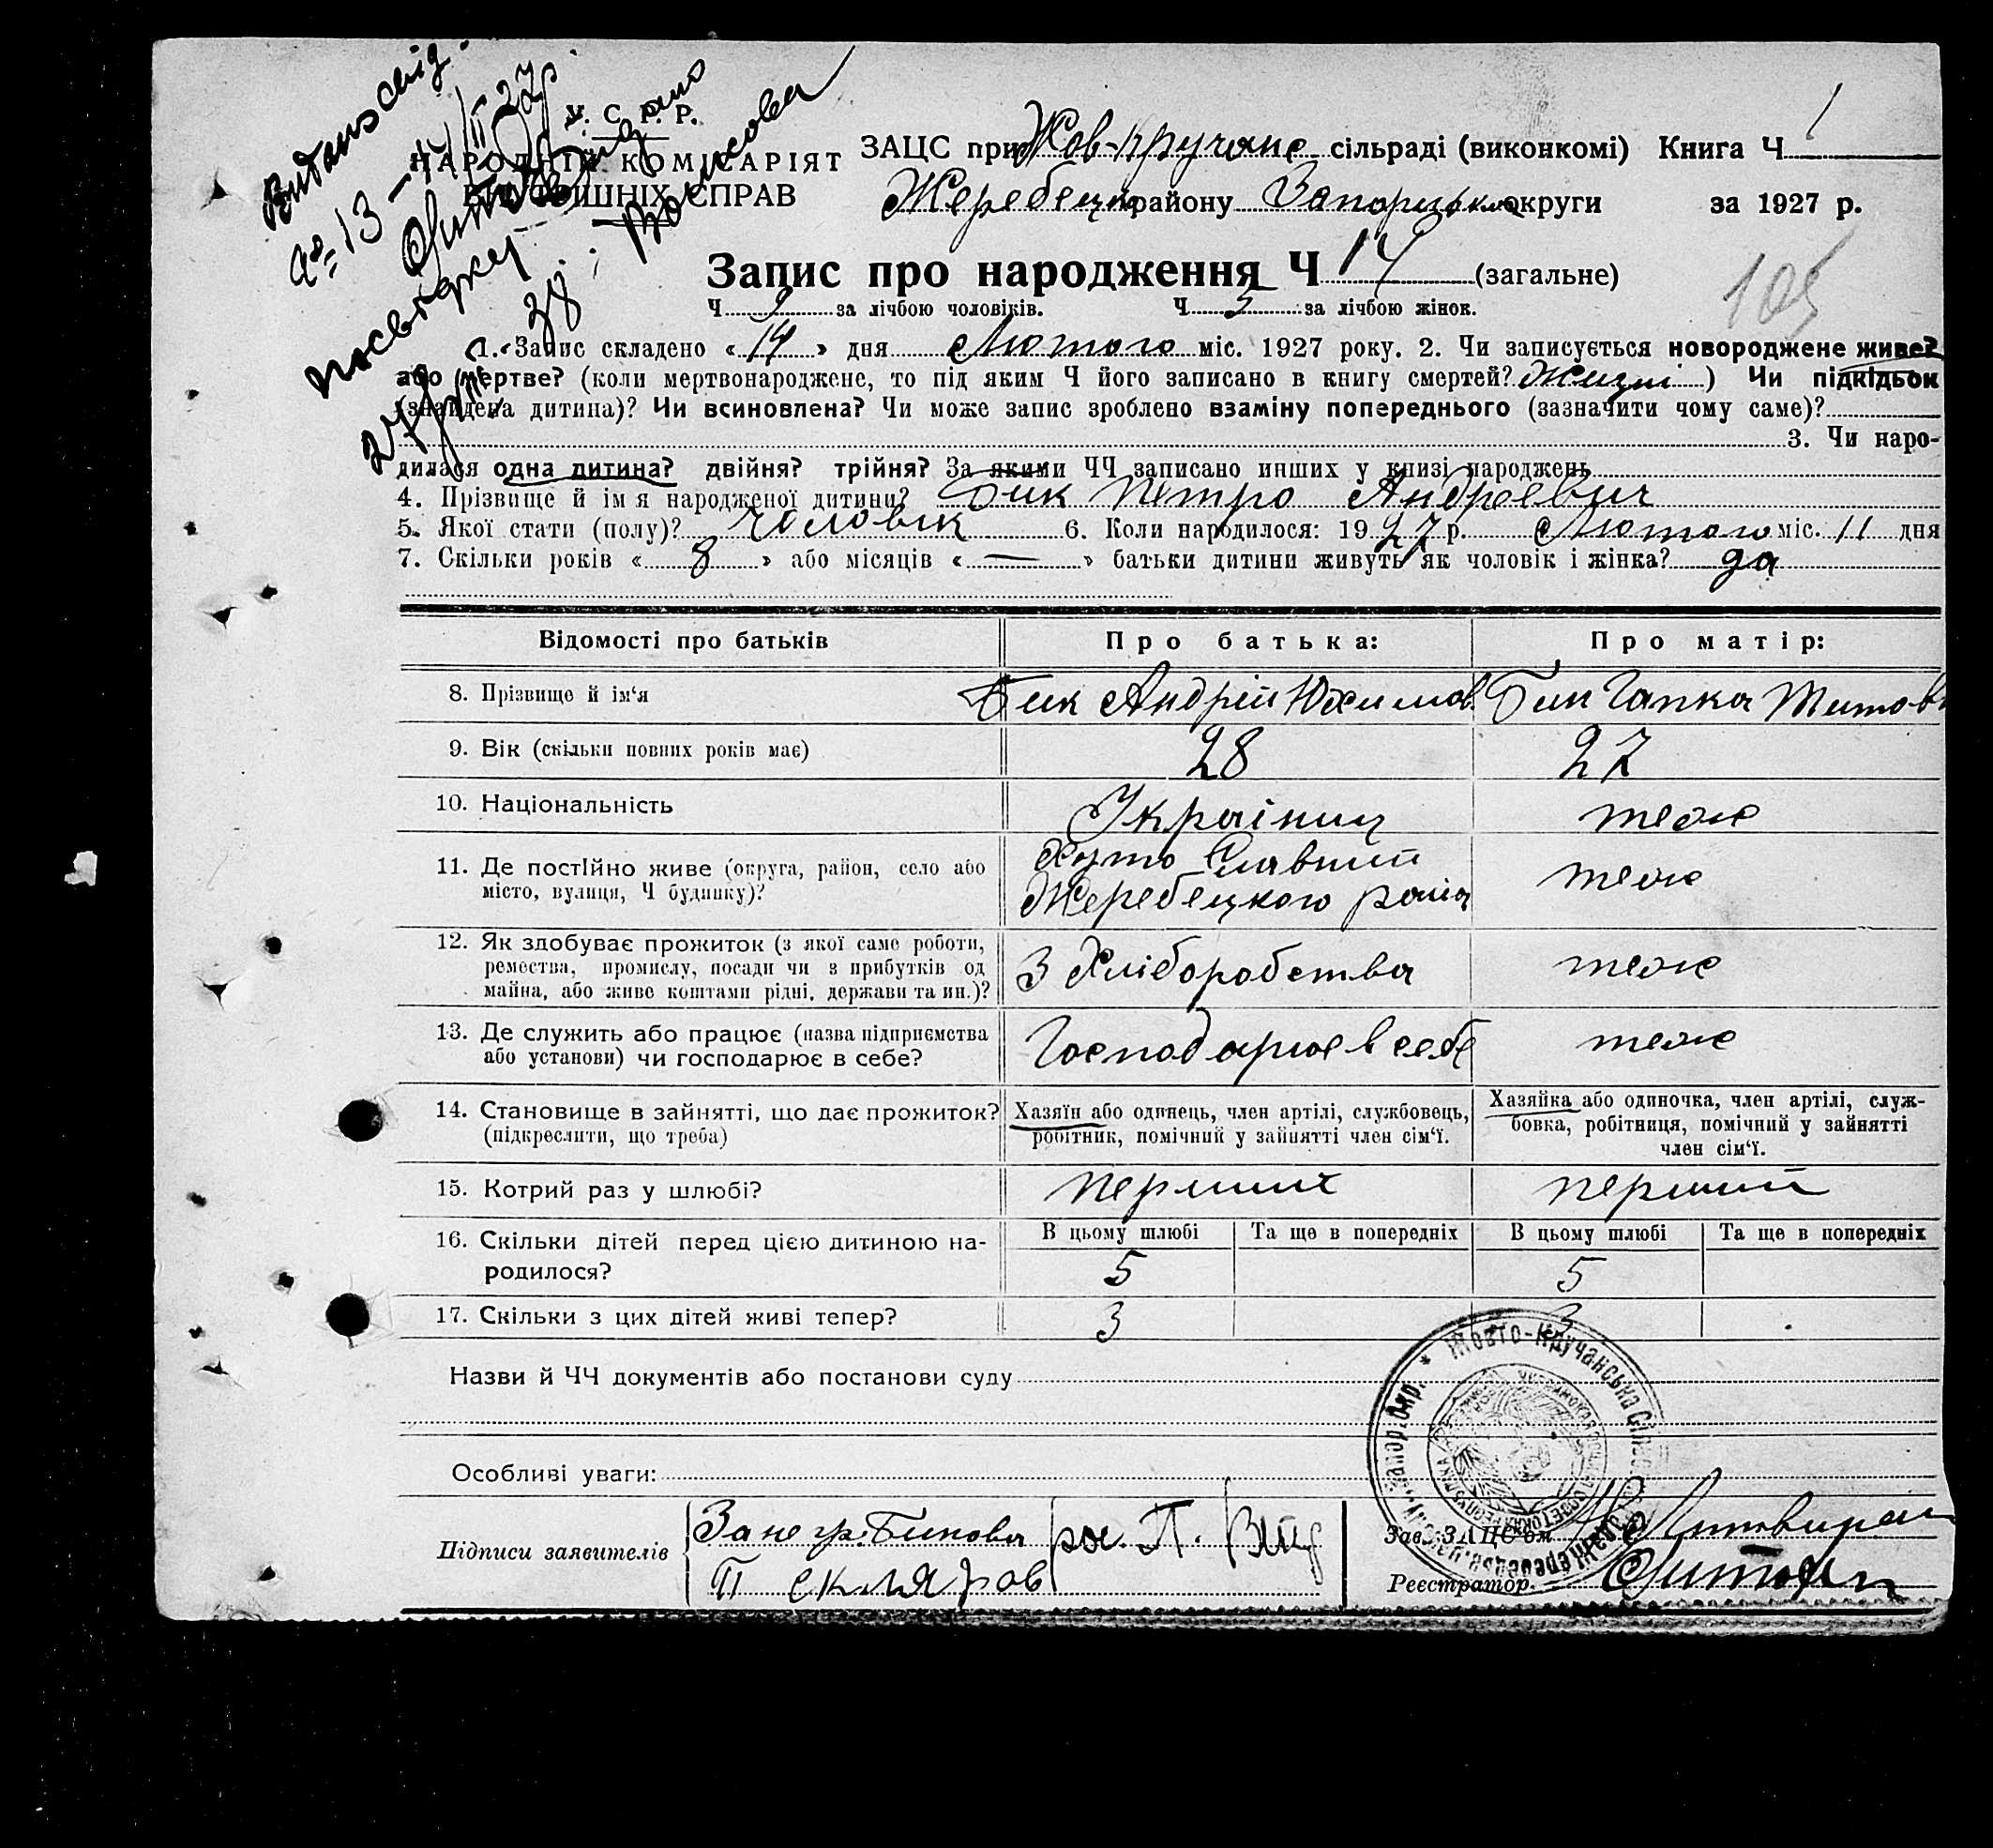 Видано свід.
№ 13 – 14/II 27 р
У. С. Р. Р.
НАРОДНІЙ КОМІСАРІЯТ
ВНУТРІШНІХ СПРАВ
ЗАЦС при Жов-кручанс сільраді (виконкомі) Книга Ч 1
Жеребецьк району Запорізьк округи за 1927 р.
Запис про народження Ч 14 (загальне)
105
Ч 9 за лічбою чоловіків. Ч 5 за лічбою жінок.
1. Запис складено « 14 » дня Лютого міс. 1927 року. 2. Чи записується новороджене живе?
або мертве? (коли мертвонароджене, то під яким Ч його записано в книгу смертей? ) Чи підкідьок
(знайдена дитина)? Чи всиновлена? Чи може запис зроблено взаміну попереднього (зазначити чому саме)?
3. Чи наро-
дилася одна дитина? двійня? трійня? За якими ЧЧ записано инших у книзі народжень
4. Прізвище й ім я народженої дитини? Бик Петро Андреевич
5. Якої стати (полу)? Чоловік 6. Коли народилося: 1927 р. Лютого міс. 11 дня
7. Скільки років « 8 » або місяців « — » батьки дитини живуть як чоловік і жінка? да
Відомості про батьків Про батька: Про матір:
8. Прізвище й ім‘я Бик Андрій Юхимов. Бик Гапка Титов
9. Вік (скільки повних років має) 28 27
10. Національність Українці теж
11. Де постійно живе (округа, район, село або місто, вулиця, Ч будинку)? Хуто Славний теж
Жеребецкого раіна
12. Як здобуває прожиток (з якої саме роботи, ремества, промислу, посади чи з прибутків од майна, або живе коштами рідні, держави та ин.)? З Хліборобства теж
13. Де служить або працює (назва підприємства або установи) чи господарює в себе? Господарює в себе теж
14. Становище в зайнятті, що дає прожиток? (підкреслити, що треба) Хазяїн або одинець, член артілі, службовець, робітник, помічний у зайнятті член сім‘ї. Хазяйка або одиночка, член артілі, служ-
бовка, робітниця, помічний у зайнятті
член сім‘ї.
15. Котрий раз у шлюбі? перший перший
16. Скільки дітей перед цією дитиною на-
родилося? В цьому шлюбі Та ще в попередніх В цьому шлюбі Та ще в попередніх
5 5
17. Скільки з цих дітей живі тепер? 3 3
Назви й ЧЧ документів або постанови суду
Особливі уваги:
Підписи заявителів За негр. Бикова рос. П.
П скляров
Зав. ЗАЦС‘ом
Реєстратор.
Жовто-Кручанська Сіл
Запор. Окр.